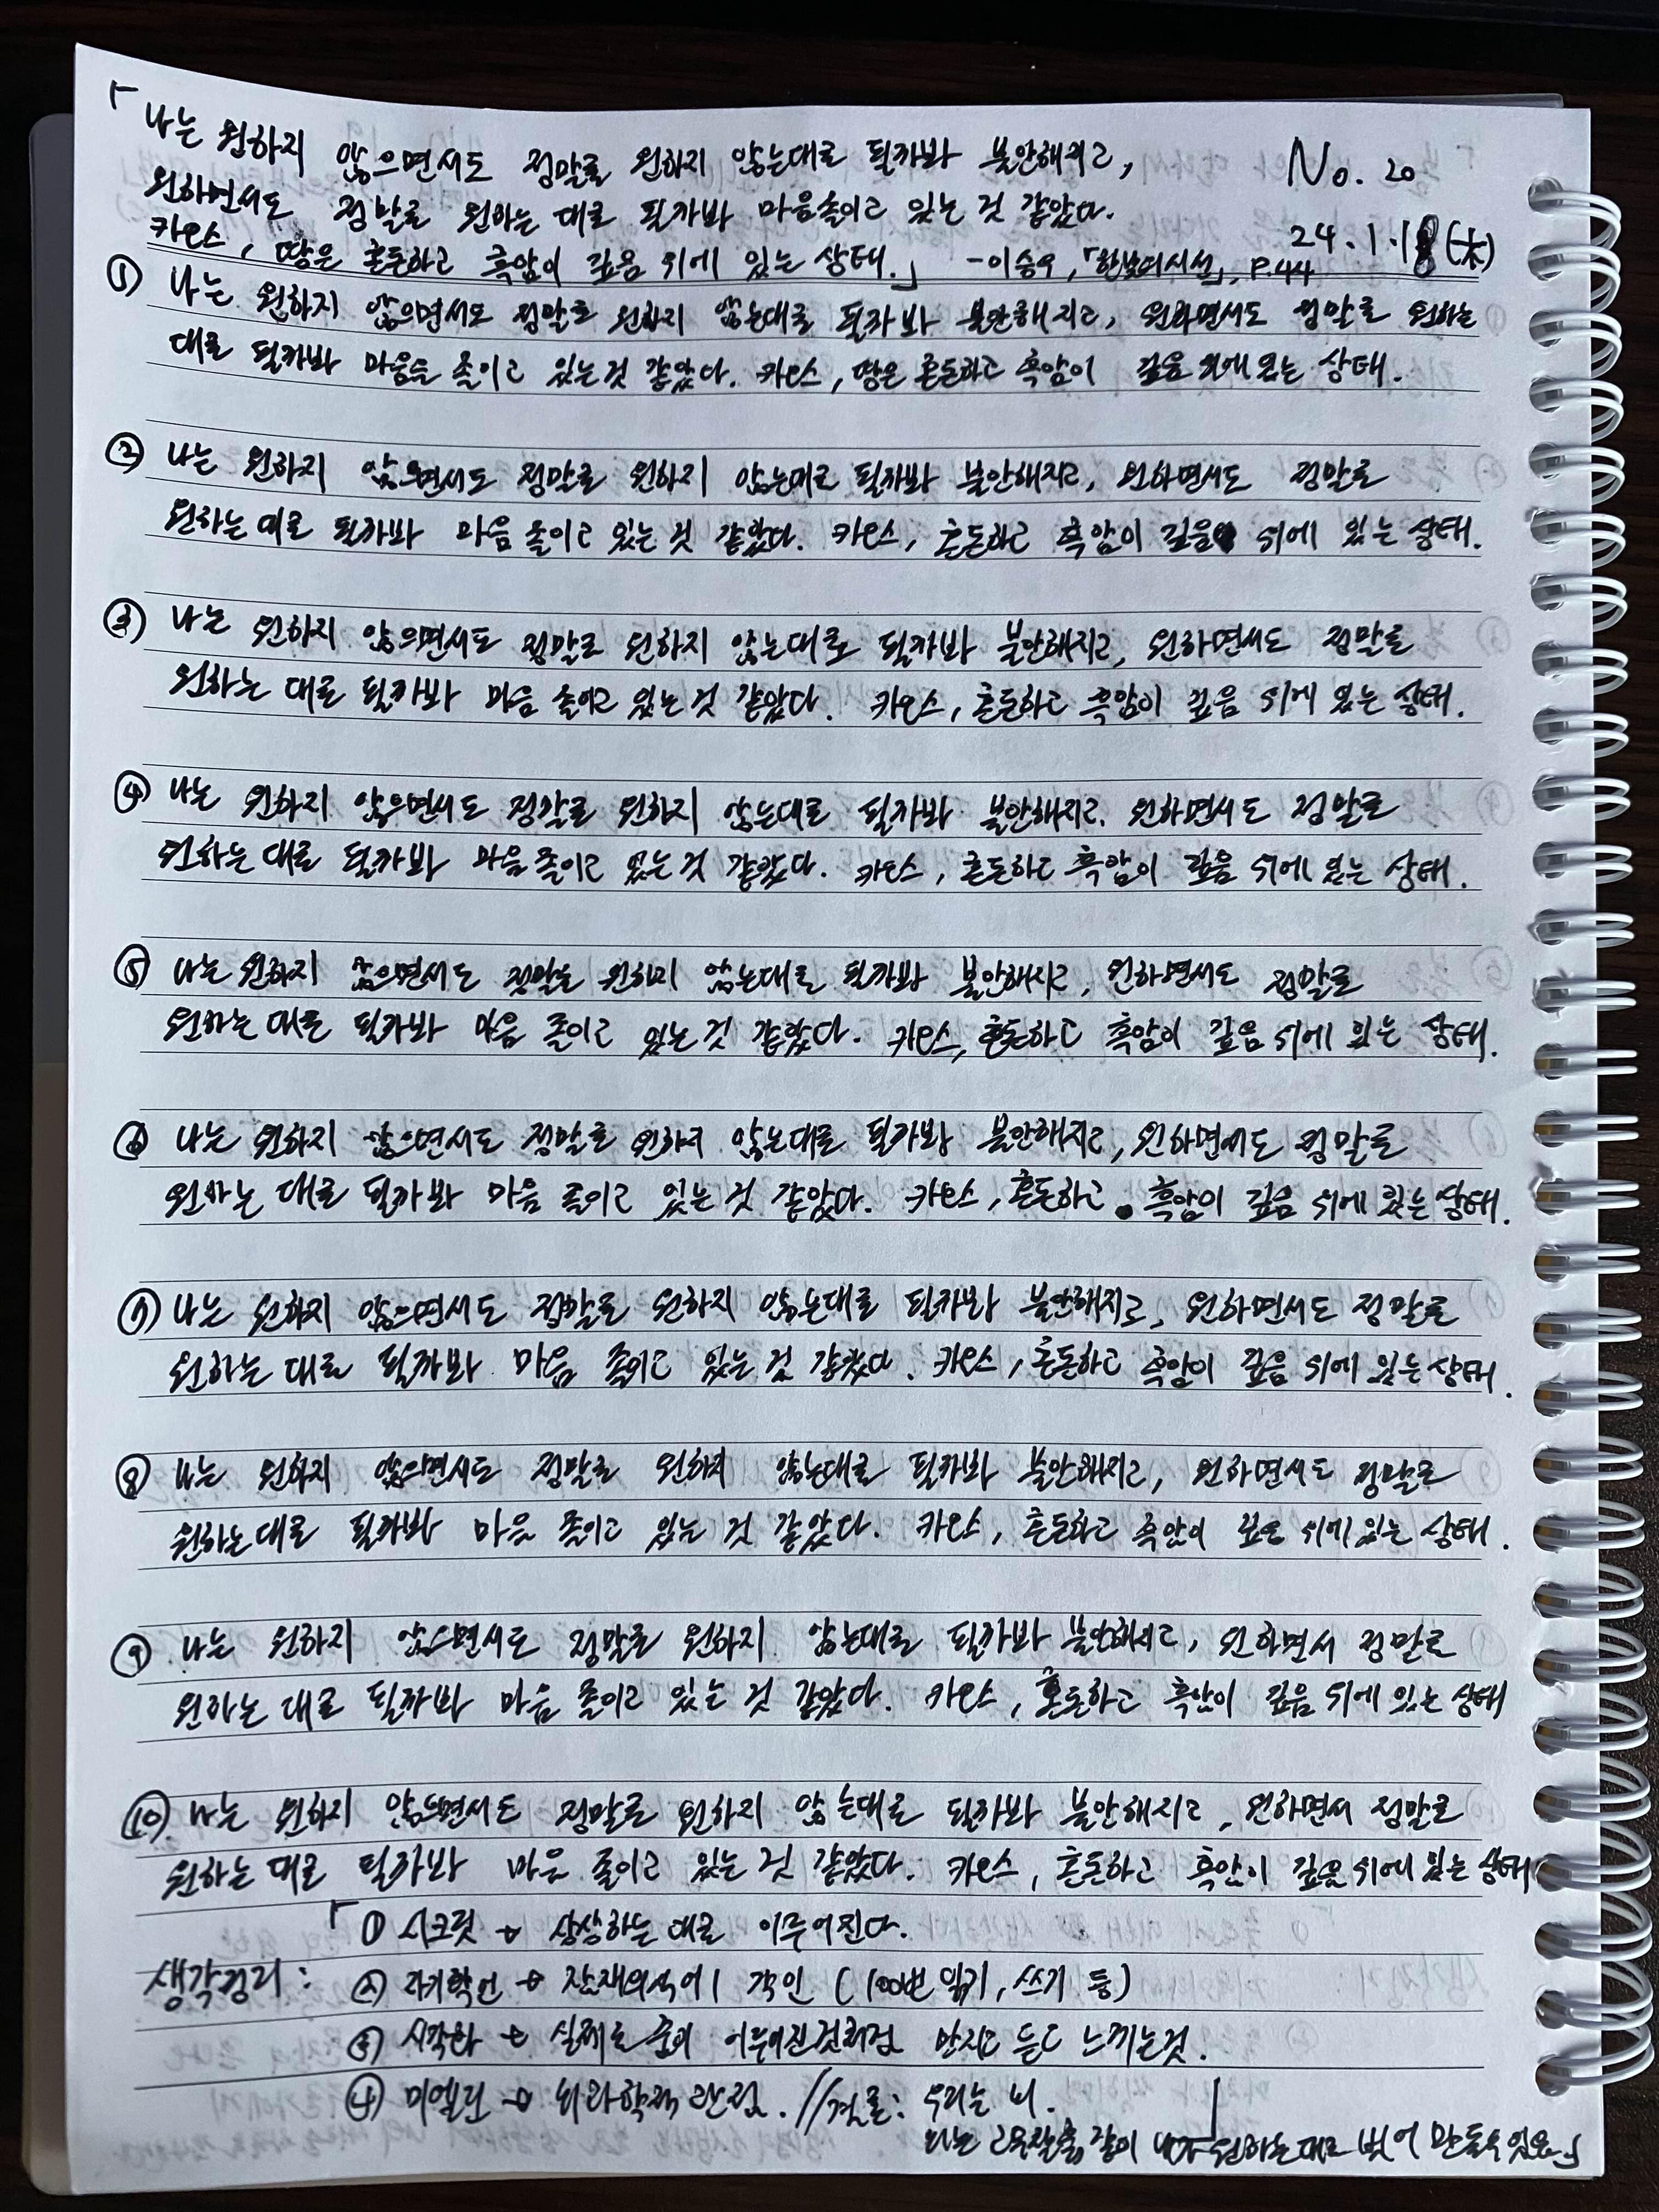 「나는 원하지 않으면서도 정말로 원하지 않는대로 될까봐 불안해지고,
No. 20
원하면서도 정말로 원하는 대로 될까봐 마음졸이고 있는 것 같았다.
24.1.18(木)
카오스, 땅은 혼돈하고 흑암이 깊음 위에 있는 상태.」 -이승우, 「한낮의 시선」, P.44
① 나는 원하지 않으면서도 정말로 원하지 않는대로 될까봐 불안해지고, 원하면서도 정말로 원하는
대로 될까봐 마음을 졸이고 있는것 같았다. 카오스, 땅은 혼돈하고 흑암이 깊음 위에 있는 상태.
② 나는 원하지 않으면서도 정말로 원하지 않는대로 될까봐 불안해지고, 원하면서도 정말로
원하는 대로 될까봐 마음 졸이고 있는 것 같았다. 카오스, 혼돈하고 흑암이 깊음 위에 있는 상태.
③ 나는 원하지 않으면서도 정말로 원하지 않는대로 될까봐 불안해지고, 원하면서도 정말로
원하는 대로 될까봐 마음 졸이고 있는 것 같았다. 카오스, 혼돈하고 흑암이 깊음 위에 있는 상태.
④ 나는 원하지 않으면서도 정말로 원하지 않는대로 될까봐 불안해지고. 원하면서도 정말로
원하는 대로 될까봐 마음 졸이고 있는 것 같았다. 카오스, 혼돈하고 흑암이 깊음 위에 있는 상태.
⑤ 나는 원하지 않으면서도 정말로 원하지 않는대로 될까봐 불안해지고, 원하면서도 정말로
원하는 대로 될까봐 마음 졸이고 있는 것 같았다. 카오스, 혼돈하고 흑암이 깊음 위에 있는 상태.
⑥ 나는 원하지 않으면서도 정말로 원하지 않는대로 될까봐 불안해지고, 원하면서도 정말로
원하는 대로 될까봐 마음 졸이고 있는 것 같았다. 카오스, 혼돈하고 흑암이 깊음 위에 있는 상태.
⑦ 나는 원하지 않으면서도 정말로 원하지 않는대로 될까봐 불안해지고, 원하면서도 정말로
원하는 대로 될까봐 마음 졸이고 있는 것 같았다. 카오스, 혼돈하고 흑암이 깊음 위에 있는 상태.
⑧ 나는 원하지 않으면서도 정말로 원하지 않는대로 될까봐 불안해지고, 원하면서도 정말로
원하는 대로 될까봐 마음 졸이고 있는 것 같았다. 카오스, 혼돈하고 흑암이 깊음 위에 있는 상태.
⑨ 나는 원하지 않으면서도 정말로 원하지 않는대로 될까봐 불안해지고, 원하면서 정말로
원하는 대로 될까봐 마음 졸이고 있는 것 같았다. 카오스, 혼돈하고 흑암이 깊음 위에 있는 상태
⑩ 나는 원하지 않으면서도 정말로 원하지 않는대로 될까봐 불안해지고, 원하면서 정말로
원하는 대로 될까봐 마음 졸이고 있는 것 같았다. 카오스, 혼돈하고 흑암이 깊음 위에 있는 상태
「① 시크릿 → 상상하는 대로 이루어진다.
생각정리: ② 자기확언 → 잠재의식에 각인 (100번 읽기, 쓰기 등)
③ 시각화 → 실제로 꿈이 이루어진것처럼 만지고 듣고 느끼는것.
④ 미엘린 → 뇌과학적 관점. //결론: 우리는 뇌.
나는 같이 내가 원하는대로 만들수 있음.」